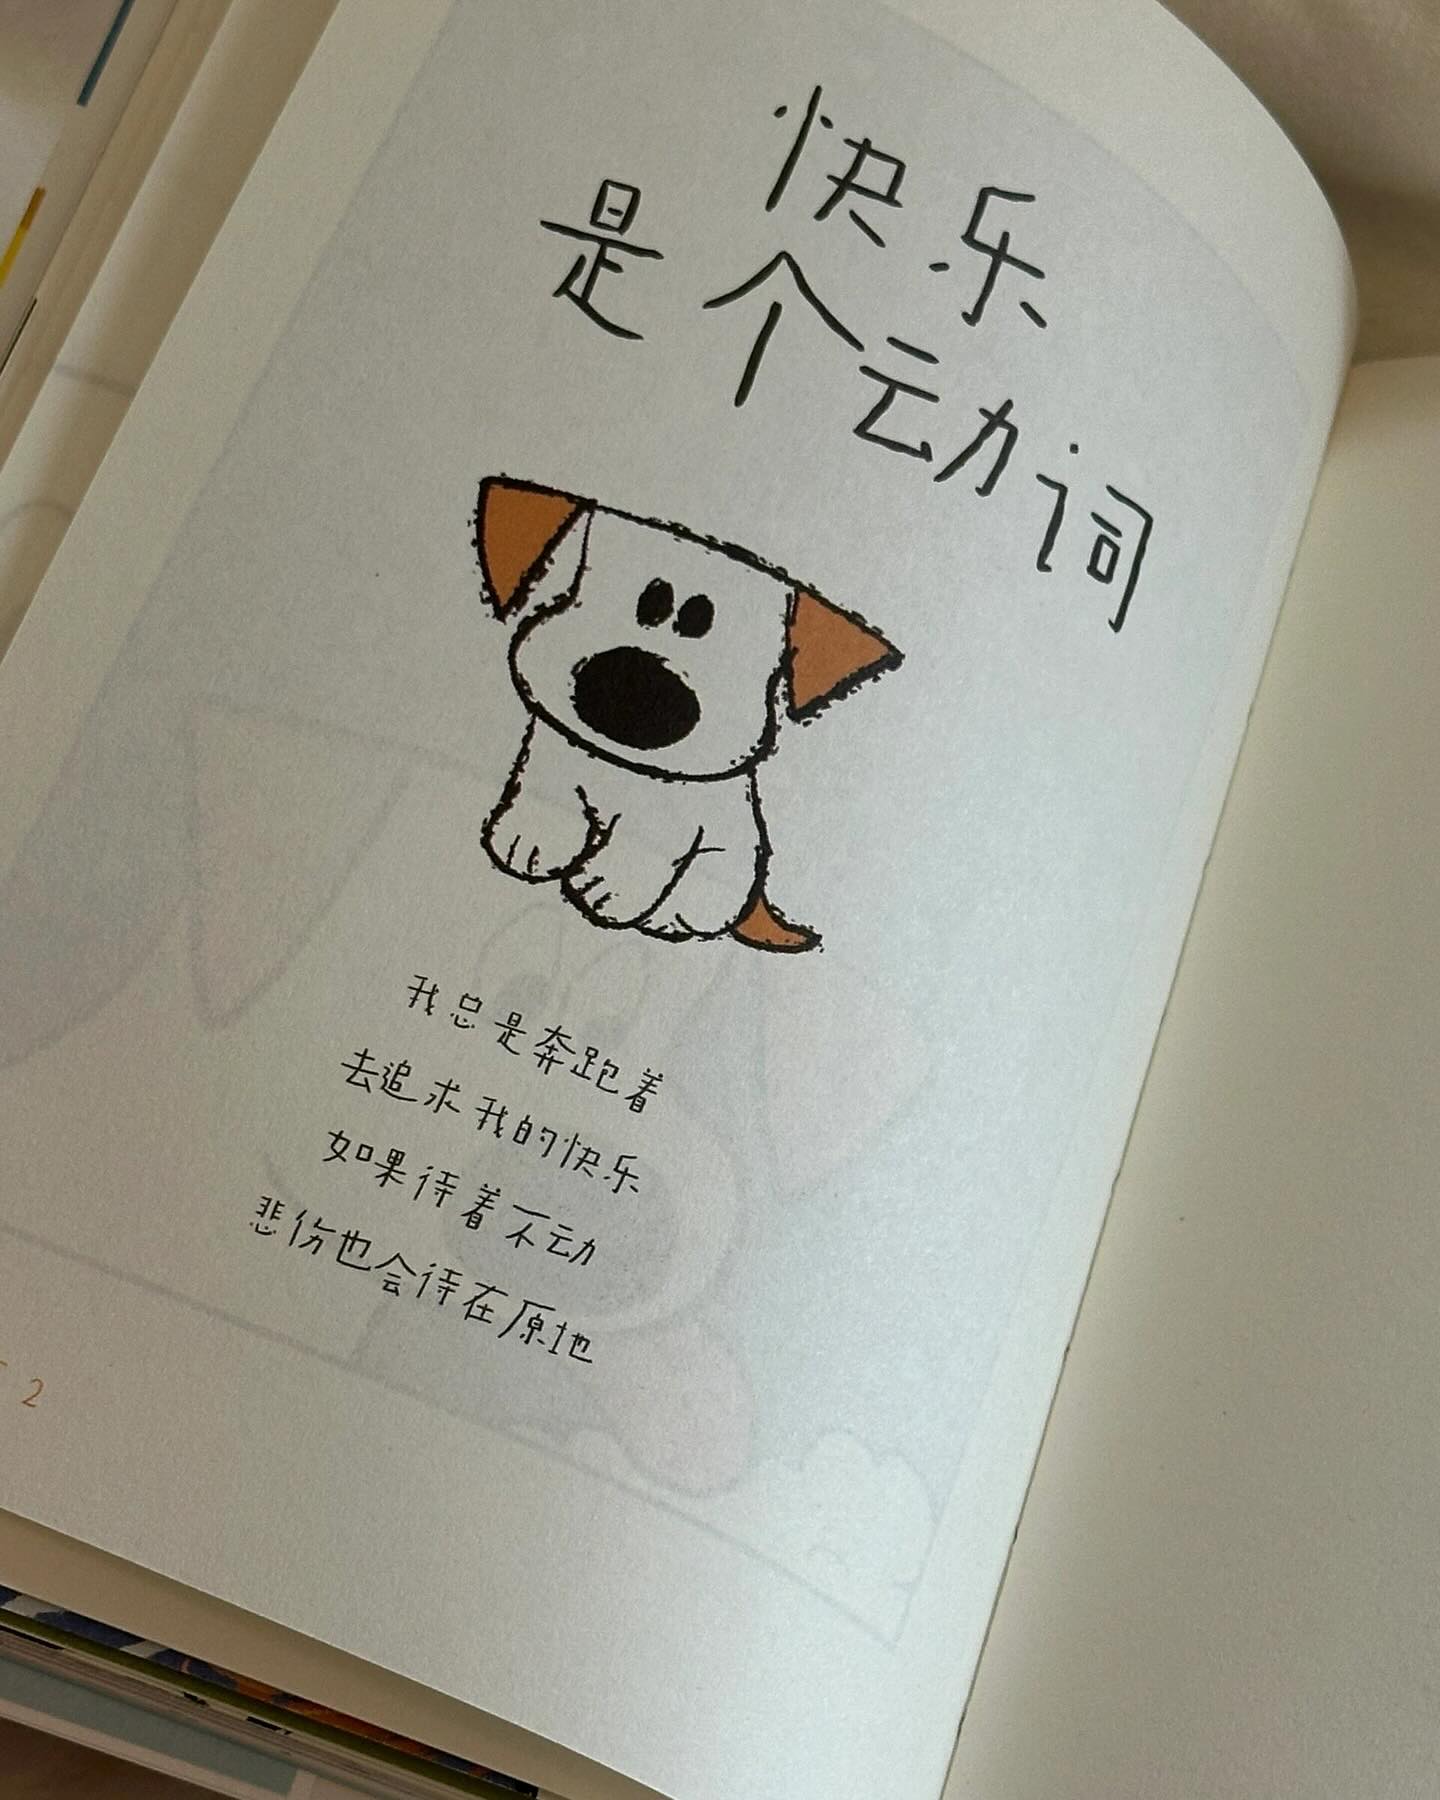 快乐
是个动词
我总是奔跑着
去追求我的快乐
如果待着不动
悲伤也会待在原地
2